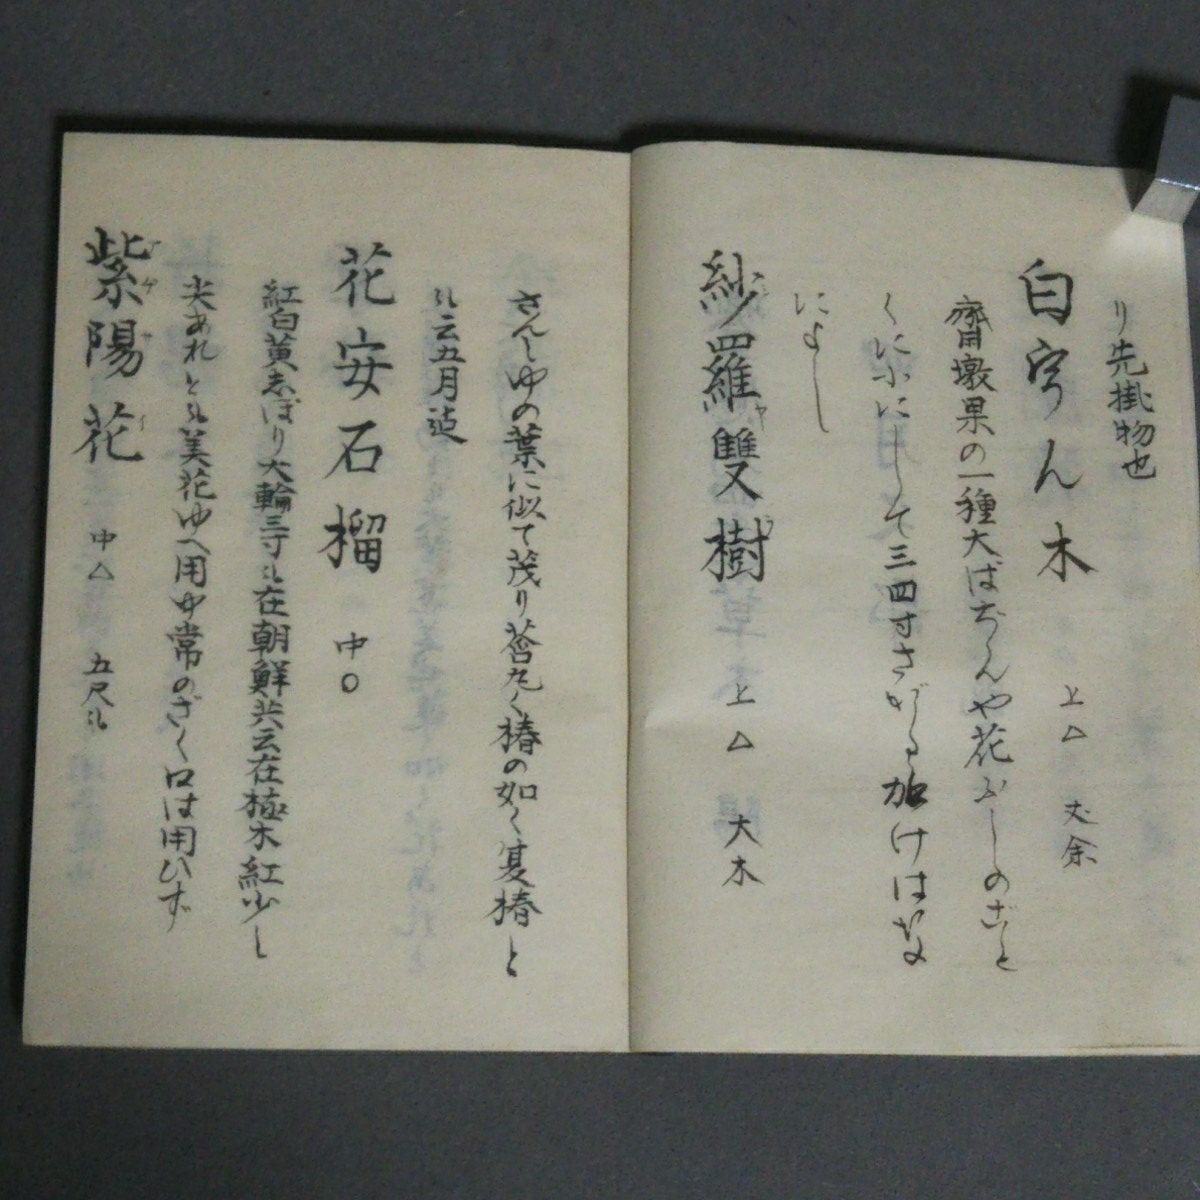 り先掛物也
白字ん木 上△ 丈余
齊墩果の一種大ばぢんや花ふしのごと
くにふにして三四寸さがる加けはな
によし
紗羅雙樹 上△ 大木
さんしゆの葉に似て茂り莟丸く椿の如く夏椿と
云五月迠
花安石榴 中○
紅白黄志ぼり大輪三寸在朝鮮共云在極木紅少し
尖あれとも美花ゆへ用ゆ常のざくロは用ひず
紫陽花 中△ 五尺